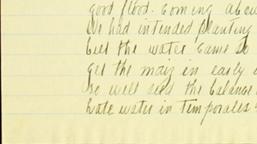 good flood. Coming about
We had intended planting
but the water came so
get the maiz in early
we will seed the balance
hate water in temporales